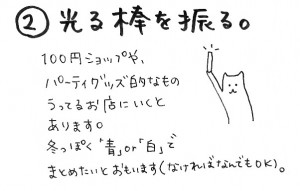 ②光る棒を振る。
100円ショップや、
パーティグッズ的なもの
うってるお店にいくと
あります。
冬っぽく「青」or「白」で
まとめたいとおもいます(なければなんでもOK)。